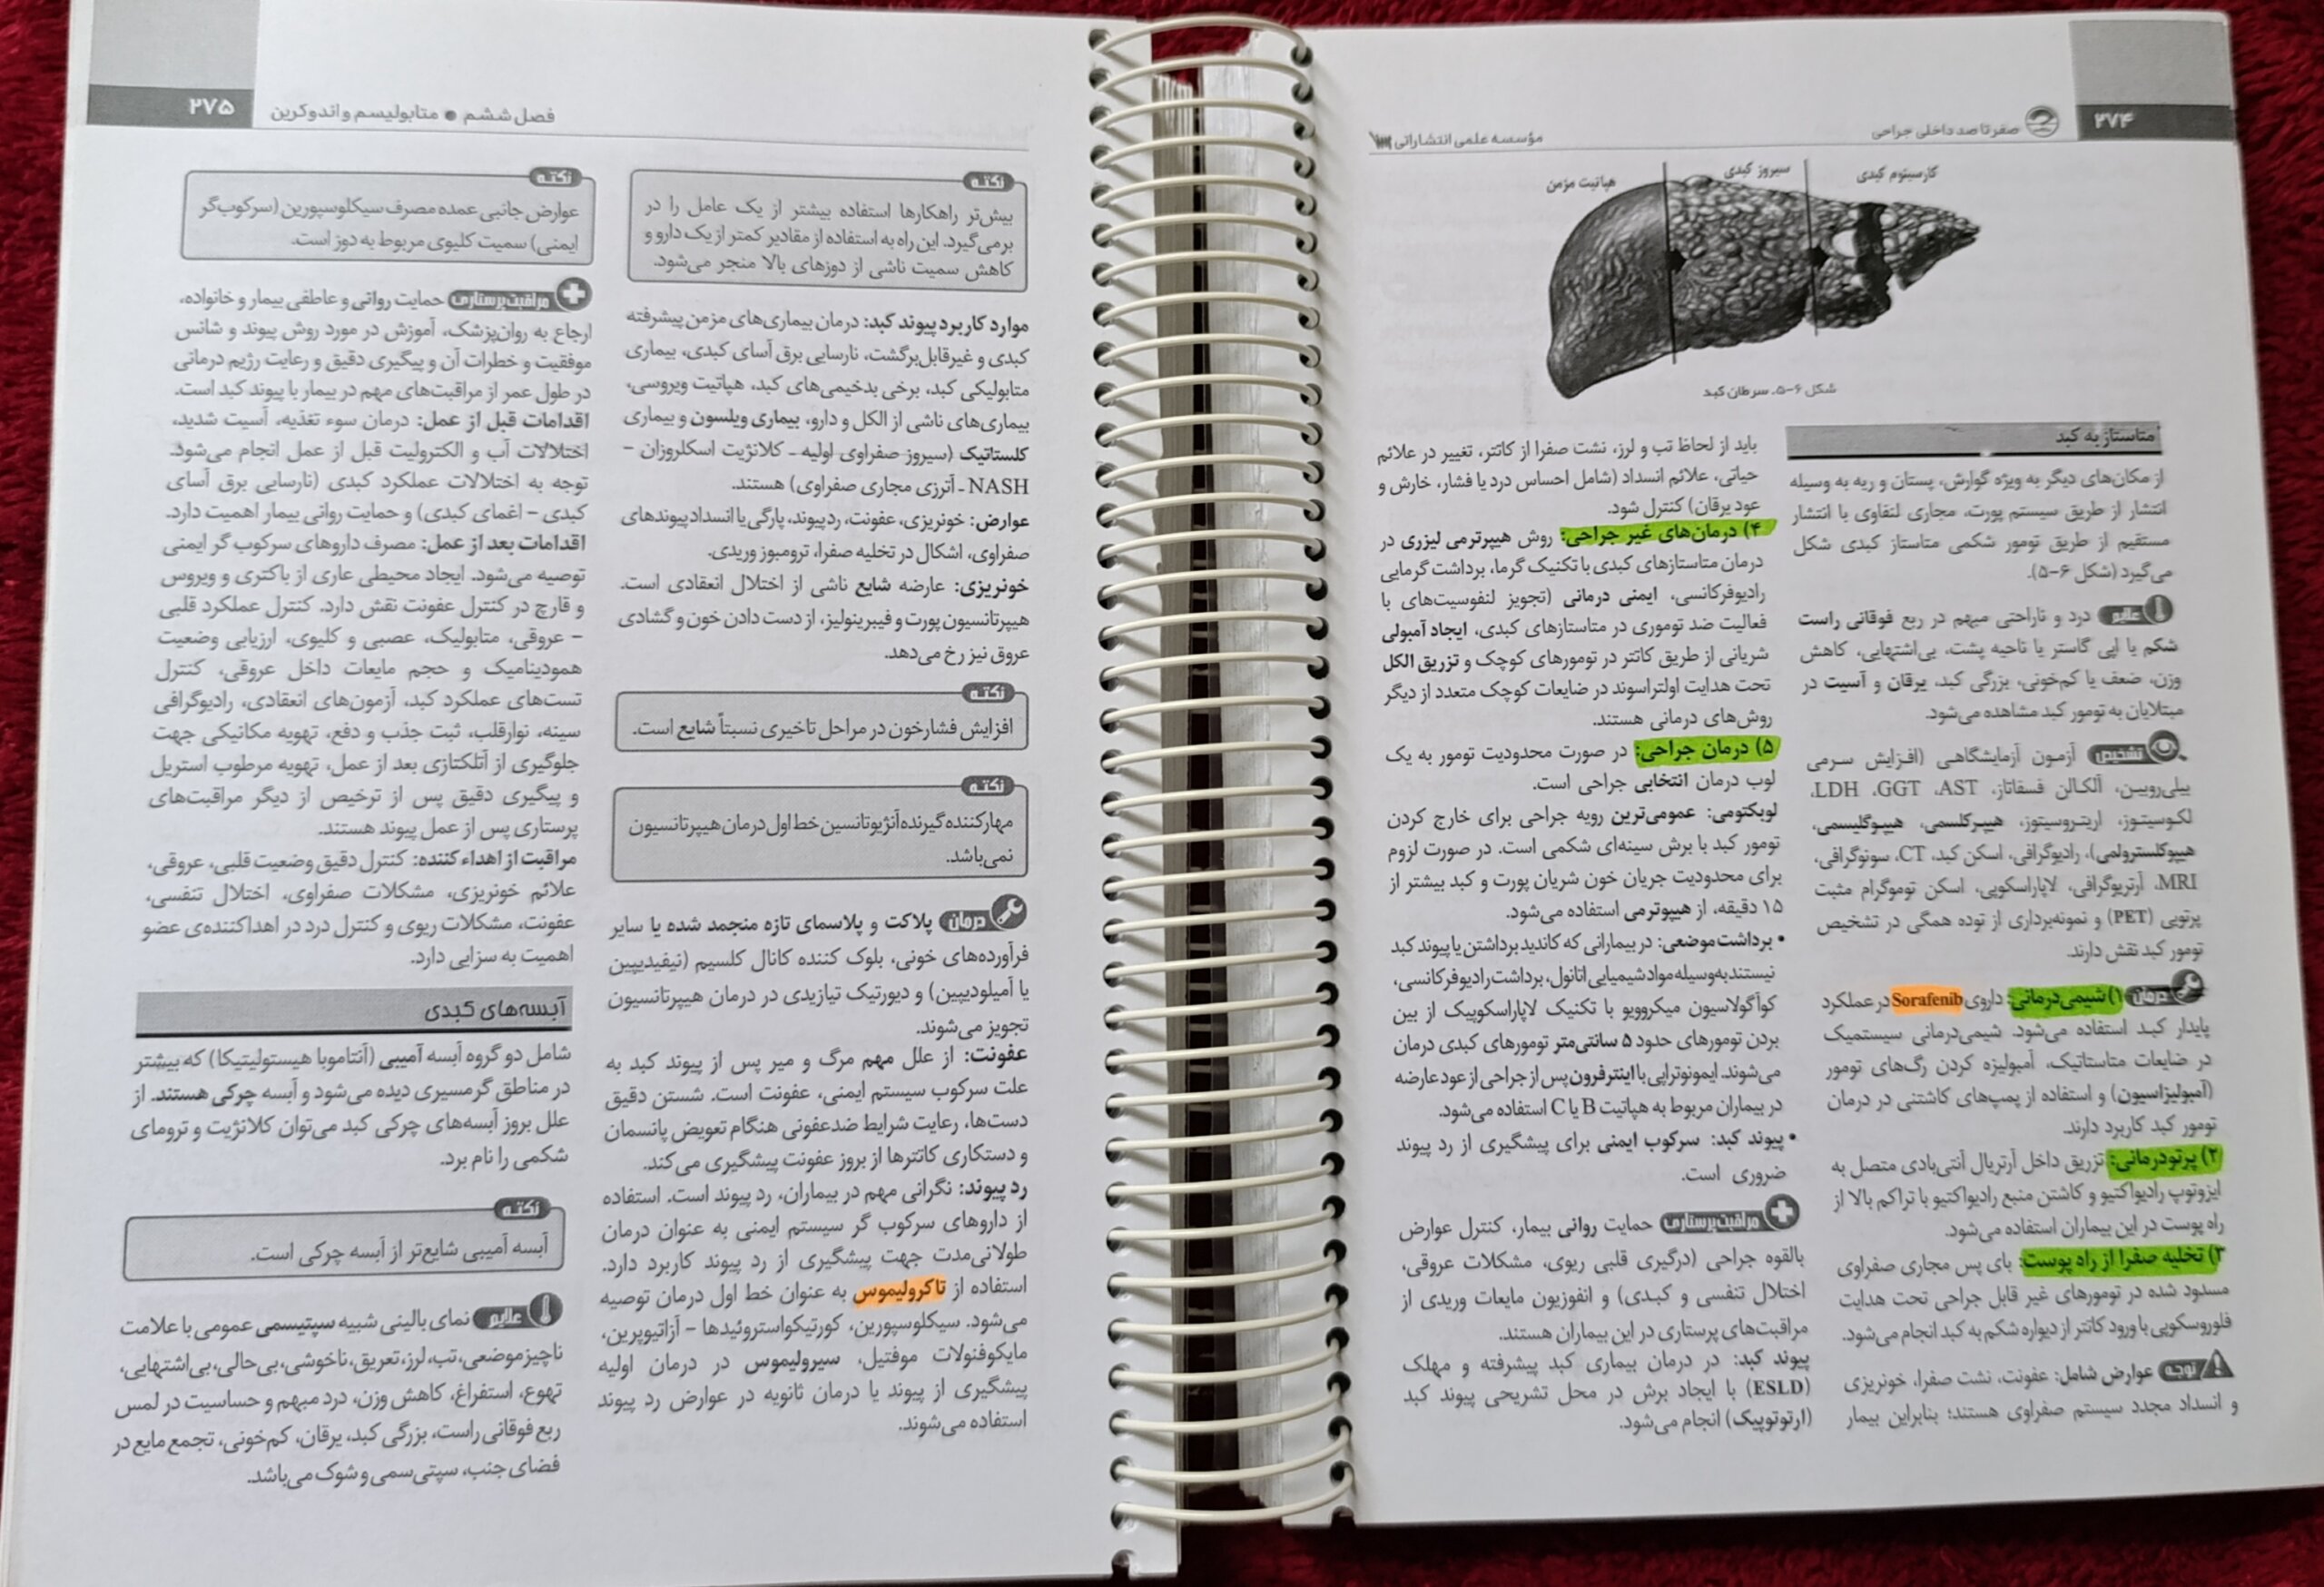 ۲۷۴
صفر تا صد داخلی جراحی
مؤسسه علمی انتشاراتی
کارسینوم کبدی
سیروز کبدی
هپاتیت مزمن
شکل ۶-۵. سرطان کبد
متاستاز به کبد
از مکان‌های دیگر به ویژه گوارش، پستان و ریه به وسیله
انتشار از طریق سیستم پورت، مجاری لنفاوی یا انتشار
مستقیم از طریق تومور شکمی متاستاز کبدی شکل
می‌گیرد (شکل ۶-۵).
علایم درد و ناراحتی مبهم در ربع فوقانی راست
شکم یا اپی گاستر یا ناحیه پشت، بی‌اشتهایی، کاهش
وزن، ضعف یا کم‌خونی، بزرگی کبد، یرقان و آسیت در
مبتلایان به تومور کبد مشاهده می‌شود.
تشخیص آزمون آزمایشگاهی (افزایش سرمی
بیلی‌روبین، آلکالن فسفاتاز، LDH ،GGT ،AST،
لکوسیتوز، اریتروسیتوز، هیپرکلسمی، هیپوگلیسمی،
هیپوکلسترولمی)، رادیوگرافی، اسکن کبد، CT، سونوگرافی،
MRI، آرتریوگرافی، لاپاراسکوپی، اسکن توموگرام مثبت
پرتویی (PET) و نمونه‌برداری از توده همگی در تشخیص
تومور کبد نقش دارند.
درمان ۱) شیمی‌درمانی: داروی Sorafenib در عملکرد
پایدار کبد استفاده می‌شود. شیمی‌درمانی سیستمیک
در ضایعات متاستاتیک، آمبولیزه کردن رگ‌های تومور
(آمبولیزاسیون) و استفاده از پمپ‌های کاشتنی در درمان
تومور کبد کاربرد دارند.
۲) پرتودرمانی: تزریق داخل آرتریال آنتی‌بادی متصل به
ایزوتوپ رادیواکتیو و کاشتن منبع رادیواکتیو با تراکم بالا از
راه پوست در این بیماران استفاده می‌شود.
۳) تخلیه صفرا از راه پوست: بای پس مجاری صفراوی
مسدود شده در تومورهای غیر قابل جراحی تحت هدایت
فلوروسکوپی با ورود کاتتر از دیواره شکم به کبد انجام می‌شود.
توجه عوارض شامل: عفونت، نشت صفرا، خونریزی
و انسداد مجدد سیستم صفراوی هستند؛ بنابراین بیمار
باید از لحاظ تب و لرز، نشت صفرا از کاتتر، تغییر در علائم
حیاتی، علائم انسداد (شامل احساس درد یا فشار، خارش و
عود یرقان) کنترل شود.
۴) درمان‌های غیر جراحی: روش هیپرترمی لیزری در
درمان متاستازهای کبدی با تکنیک گرما، برداشت گرمایی
رادیوفرکانسی، ایمنی درمانی (تجویز لنفوسیت‌های با
فعالیت ضد توموری در متاستازهای کبدی، ایجاد آمبولی
شریانی از طریق کاتتر در تومورهای کوچک و تزریق الکل
تحت هدایت اولتراسوند در ضایعات کوچک متعدد از دیگر
روش‌های درمانی هستند.
۵) درمان جراحی: در صورت محدودیت تومور به یک
لوب درمان انتخابی جراحی است.
لوبکتومی: عمومی‌ترین رویه جراحی برای خارج کردن
تومور کبد با برش سینه‌ای شکمی است. در صورت لزوم
برای محدودیت جریان خون شریان پورت و کبد بیشتر از
۱۵ دقیقه، از هیپوترمی استفاده می‌شود.
• برداشت موضعی: در بیمارانی که کاندید برداشتن یا پیوند کبد
نیستند به وسیله مواد شیمیایی اتانول، برداشت رادیوفرکانسی،
کوآگولاسیون میکروویو با تکنیک لاپاراسکوپیک از بین
بردن تومورهای حدود ۵ سانتی‌متر تومورهای کبدی درمان
می‌شوند. ایمونوتراپی با اینترفرون پس از جراحی از عود عارضه
در بیماران مربوط به هپاتیت B یا C استفاده می‌شود.
• پیوند کبد: سرکوب ایمنی برای پیشگیری از رد پیوند
ضروری است.
مراقبت پرستاری حمایت روانی بیمار، کنترل عوارض
بالقوه جراحی (درگیری قلبی ریوی، مشکلات عروقی،
اختلال تنفسی و کبدی) و انفوزیون مایعات وریدی از
مراقبت‌های پرستاری در این بیماران هستند.
پیوند کبد: در درمان بیماری کبد پیشرفته و مهلک
(ESLD) با ایجاد برش در محل تشریحی پیوند کبد
(ارتوتوپیک) انجام می‌شود.
فصل ششم ● متابولیسم و اندوکرین
۲۷۵
نکته
بیش‌تر راهکارها استفاده بیشتر از یک عامل را در
برمی‌گیرد. این راه به استفاده از مقادیر کمتر از یک دارو و
کاهش سمیت ناشی از دوزهای بالا منجر می‌شود.
موارد کاربرد پیوند کبد: درمان بیماری‌های مزمن پیشرفته
کبدی و غیرقابل‌برگشت، نارسایی برق آسای کبدی، بیماری
متابولیکی کبد، برخی بدخیمی‌های کبد، هپاتیت ویروسی،
بیماری‌های ناشی از الکل و دارو، بیماری ویلسون و بیماری
کلستاتیک (سیروز صفراوی اولیه - کلانژیت اسکلروزان -
NASH - آترزی مجاری صفراوی) هستند.
عوارض: خونریزی، عفونت، رد پیوند، پارگی یا انسداد پیوندهای
صفراوی، اشکال در تخلیه صفرا، ترومبوز وریدی.
خونریزی: عارضه شایع ناشی از اختلال انعقادی است.
هیپرتانسیون پورت و فیبرینولیز، از دست دادن خون و گشادی
عروق نیز رخ می‌دهد.
نکته
افزایش فشارخون در مراحل تاخیری نسبتاً شایع است.
نکته
مهارکننده گیرنده آنژیوتانسین خط اول درمان هیپرتانسیون
نمی‌باشد.
درمان پلاکت و پلاسمای تازه منجمد شده یا سایر
فرآورده‌های خونی، بلوک کننده کانال کلسیم (نیفیدیپین
یا آمیلودیپین) و دیورتیک تیازیدی در درمان هیپرتانسیون
تجویز می‌شوند.
عفونت: از علل مهم مرگ و میر پس از پیوند کبد به
علت سرکوب سیستم ایمنی، عفونت است. شستن دقیق
دست‌ها، رعایت شرایط ضدعفونی هنگام تعویض پانسمان
و دستکاری کاتترها از بروز عفونت پیشگیری می‌کند.
رد پیوند: نگرانی مهم در بیماران، رد پیوند است. استفاده
از داروهای سرکوب گر سیستم ایمنی به عنوان درمان
طولانی‌مدت جهت پیشگیری از رد پیوند کاربرد دارد.
استفاده از تاکرولیموس به عنوان خط اول درمان توصیه
می‌شود. سیکلوسپورین، کورتیکواستروئیدها - آزاتیوپرین،
مایکوفنولات موفتیل، سیرولیموس در درمان اولیه
پیشگیری از پیوند یا درمان ثانویه در عوارض رد پیوند
استفاده می‌شوند.
نکته
عوارض جانبی عمده مصرف سیکلوسپورین (سرکوب‌گر
ایمنی) سمیت کلیوی مربوط به دوز است.
مراقبت پرستاری حمایت روانی و عاطفی بیمار و خانواده،
ارجاع به روان‌پزشک، آموزش در مورد روش پیوند و شانس
موفقیت و خطرات آن و پیگیری دقیق و رعایت رژیم درمانی
در طول عمر از مراقبت‌های مهم در بیمار با پیوند کبد است.
اقدامات قبل از عمل: درمان سوء تغذیه، آسیت شدید،
اختلالات آب و الکترولیت قبل از عمل انجام می‌شود.
توجه به اختلالات عملکرد کبدی (نارسایی برق آسای
کبدی - اغمای کبدی) و حمایت روانی بیمار اهمیت دارد.
اقدامات بعد از عمل: مصرف داروهای سرکوب گر ایمنی
توصیه می‌شود. ایجاد محیطی عاری از باکتری و ویروس
و قارچ در کنترل عفونت نقش دارد. کنترل عملکرد قلبی
- عروقی، متابولیک، عصبی و کلیوی، ارزیابی وضعیت
همودینامیک و حجم مایعات داخل عروقی، کنترل
تست‌های عملکرد کبد، آزمون‌های انعقادی، رادیوگرافی
سینه، نوارقلب، ثبت جذب و دفع، تهویه مکانیکی جهت
جلوگیری از آتلکتازی بعد از عمل، تهویه مرطوب استریل
و پیگیری دقیق پس از ترخیص از دیگر مراقبت‌های
پرستاری پس از عمل پیوند هستند.
مراقبت از اهداء کننده: کنترل دقیق وضعیت قلبی، عروقی،
علائم خونریزی، مشکلات صفراوی، اختلال تنفسی،
عفونت، مشکلات ریوی و کنترل درد در اهداکننده‌ی عضو
اهمیت به سزایی دارد.
آبسه‌های کبدی
شامل دو گروه آبسه آمیبی (آنتاموبا هیستولیتیکا) که بیشتر
در مناطق گرمسیری دیده می‌شود و آبسه چرکی هستند. از
علل بروز آبسه‌های چرکی کبد می‌توان کلانژیت و ترومای
شکمی را نام برد.
نکته
آبسه آمیبی شایع‌تر از آبسه چرکی است.
علایم نمای بالینی شبیه سپتیسمی عمومی با علامت
ناچیز موضعی، تب، لرز، تعریق، ناخوشی، بی‌حالی، بی‌اشتهایی،
تهوع، استفراغ، کاهش وزن، درد مبهم و حساسیت در لمس
ربع فوقانی راست، بزرگی کبد، یرقان، کم‌خونی، تجمع مایع در
فضای جنب، سپتی‌سمی و شوک می‌باشد.